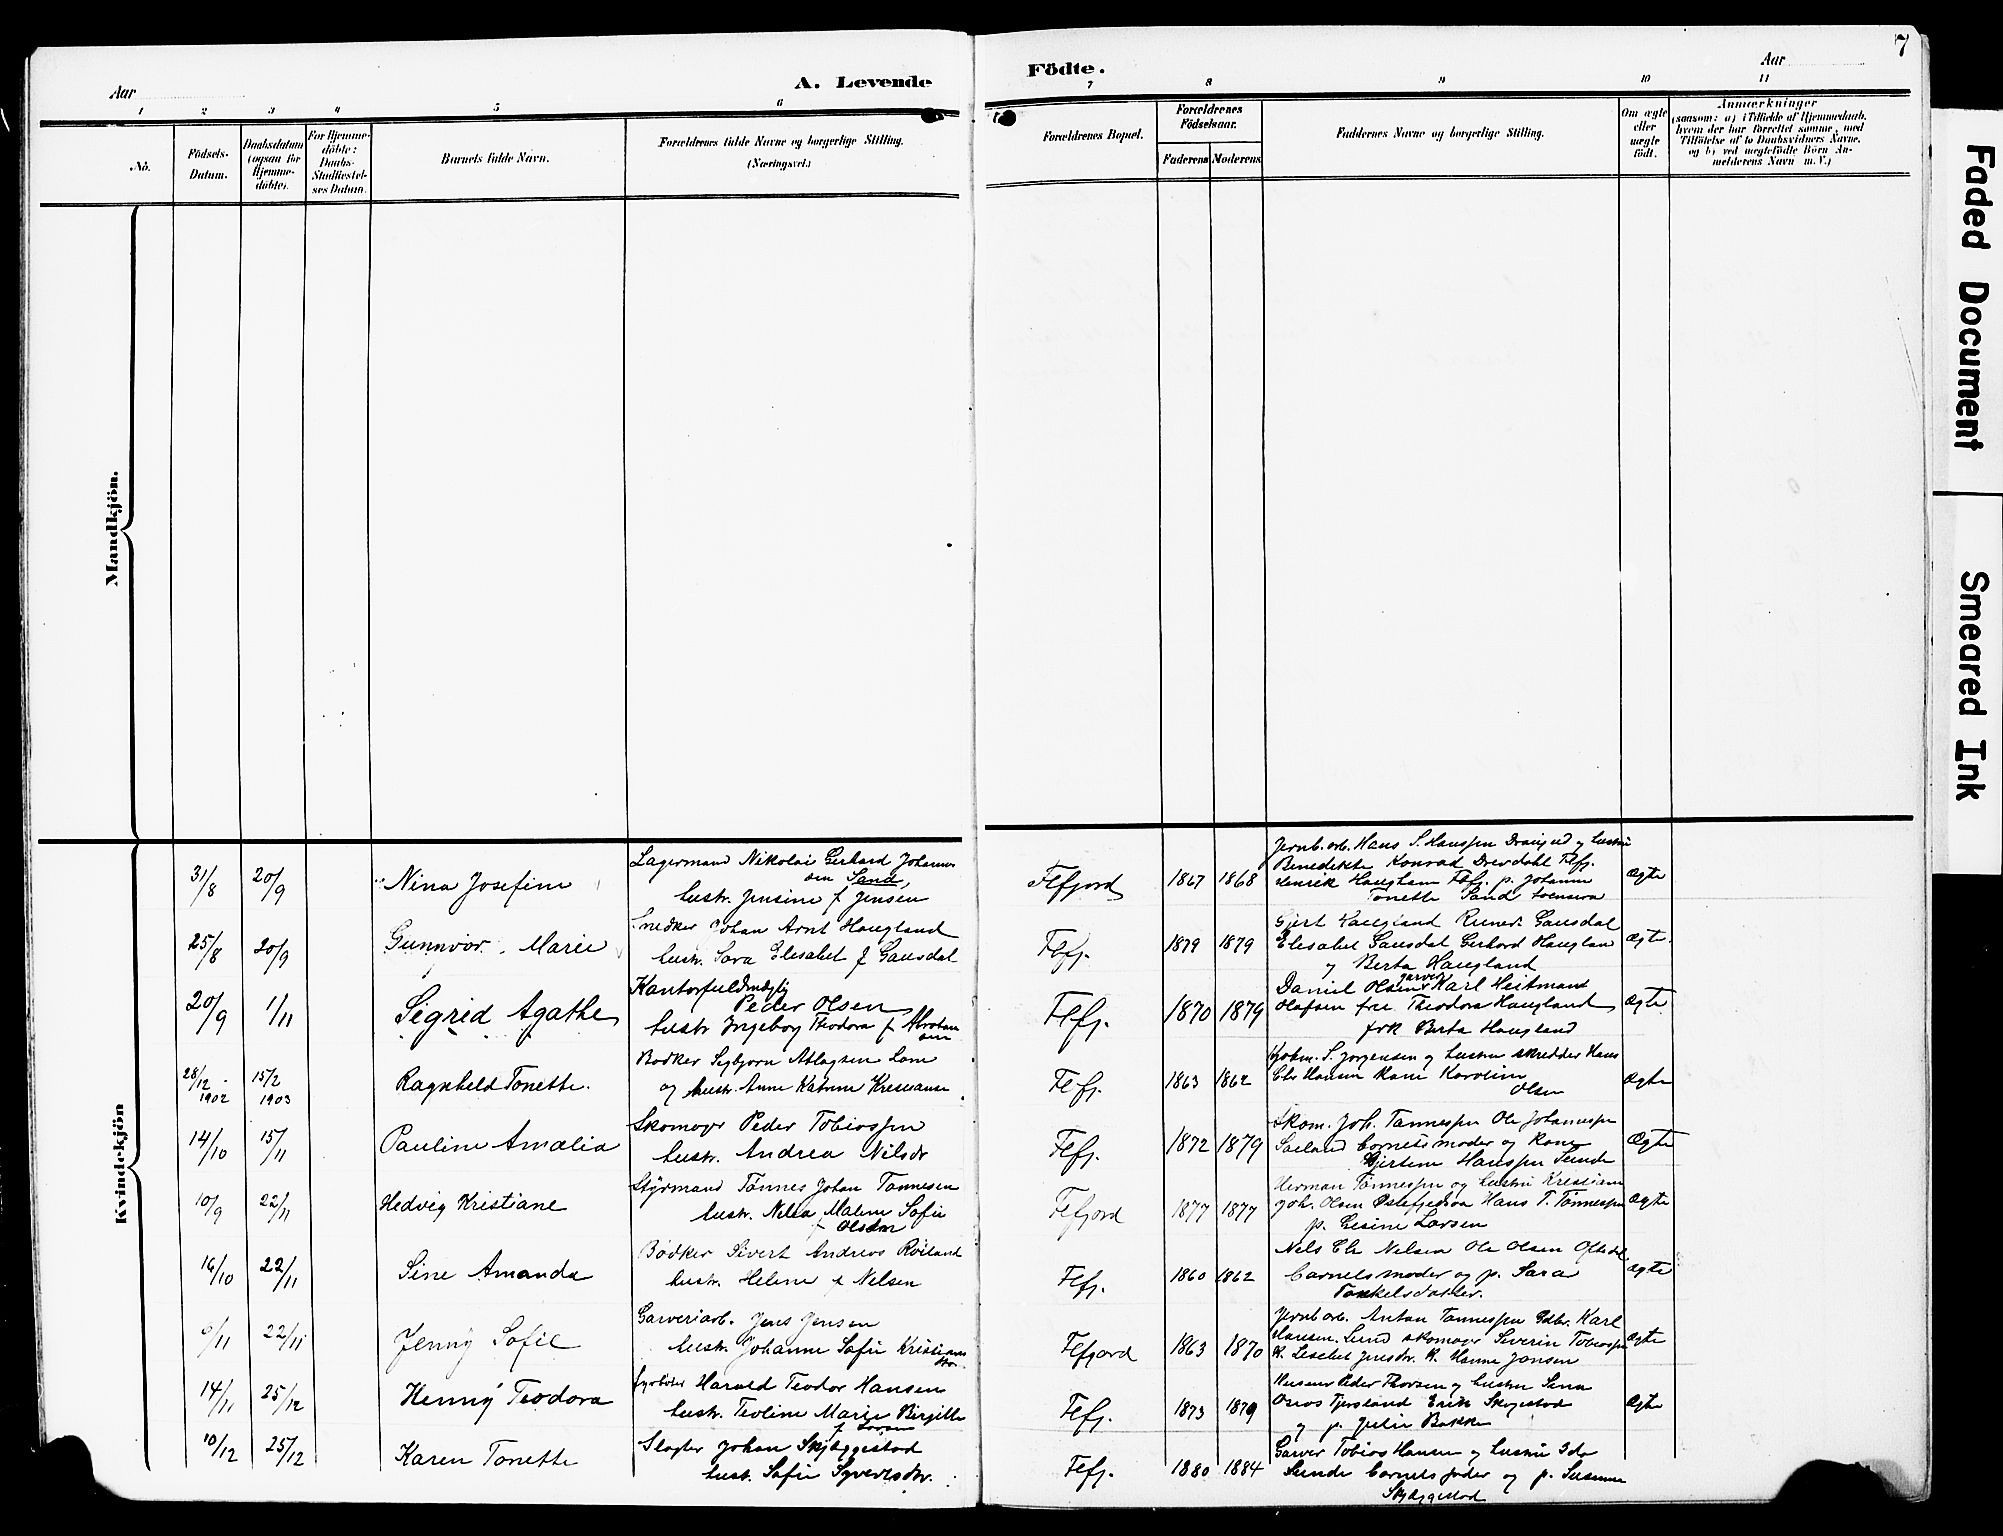 7
Aar
A. Levende
Födte.
Aar
1 2 3 4 5 6 7 8 9 10 11
No.
Födsels-Datum.
Daabsdatum (ogsaa for Hjemme-döbte).
For Hjemme-döbte: Daabs-Stadfæstel-ses Datum.
Barnets fulde Navn.
Forældrenes fulde Navne og borgerlige Stilling. (Næringsvei.)
Forældrenes Bopæl.
Forældrenes Födselsaar.
Faderens Moderens
Faddernes Navne og borgerlige Stilling.
Om ægte eller uægte født.
Anmærkninger
(saasom: a) i Tilfælde af Hjemmedaab, hvem der har forrettet samme, med Tilföielse af to Daabsvidners Navne, og b) ved uægtefödte Börn Anmelderens Navn m. V.)
Mandkjön.
Kvindekjön
31/8 20/9 Nina Josefine
Lagermand Nikolai Gerhard Johannes
sen Sand,
hustr. Jensine f Jensen
Flefjord 1867 1868
Jernb. arb. Hans S. Hanssen
Benedikte Konrad Drevdahl Flefj.
Tonette Sand
Ægte
25/8 20/9 Gunnvor Marie
Snedker Johan Arnt Haugland
hustr. Sara Elisabet f Gausdal
Flefj. 1879 1879
Gjert Haugland Gausdal
Elisabet Gausdal Gerhard Hauglan
og Berta Haugland
Ægte.
20/9 1/11 Sigrid Agathe
Kantorfuldmægtig
Peder Olsen
hustr Ingeborg Theodora f Abraham
sen
Flefj. 1870 1879
Daniel Olsen garver Karl Heitmann
Olafsen fru Theodora Haugland
frk Berta Haugland
Ægte
28/12 1902 15/2 1903 Ragnhild Tonette.
Bødker Sigbjørn Atlagsen Lone
og hustr. Anne Katrine
Flefj. 1863 1862
Kjøbm. S. Jørgensen og hustru skredder Hans
Kone Karoline
Olsen
Ægte
14/10 15/11 Pauline Amalia
Skomager Peder Tobiassen
hustr. Andrea Nilsdr
Flefj. 1872 1879
Skom. Joh. Tønnessen Ole Johannessen
Barnets moder og Kone
Hanssen Sunde
Ægte
10/9 22/11 Hedvig Kristiane
Styrmand Tønnes Johan Tønnesen
hustr. Malene Sofie
f Olsen
Flefjord 1877 1877
Herman Tønnessen og hustru Kristiane
Joh. Olsen Hans T. Tønnessen
p. Gesine Larsen
Ægte
16/10 22/11 Sine Amanda
Bødker Sivert Andreas Røiland
hustr. Helene f Nelsen
Flefj. 1860 1862
Nels Nelsen Ole Olsen
Barnets moder og p. Sara
Ægte
/11 22/11 Jenny Sofie
Garveriarb. Jens Jensen
hustr. Johanne Sofie Kristians
dtr.
Flefjord 1863 1870
Jernb arb. Anton Tønnessen Karl
Hansen. Lund skomager Severin Tobiassen
K. Lisabet Jensdr. K. Hanne Jansen
Ægte
14/11 25/12 Henny Teodora
Fyrbøder Harald Teodor Hansen
hustr. Teoline Marie Birgitte
f Larsen
Flefj. 1873 1879
Peder Thorsen og hustru Sina
Erik Skogestad
og p. Julie Bakke
Ægte
10/12 25/12 Karen Tonette
Slagter Johan Skjæggestad
hust. Sofie Syvertsdtr.
Flefj. 1880 1884
Garver Tobias Hansen og hustru Ida
Sunde barnets fader og p. Susanne
Skjæggestad
Faded Document
Smeared Ink